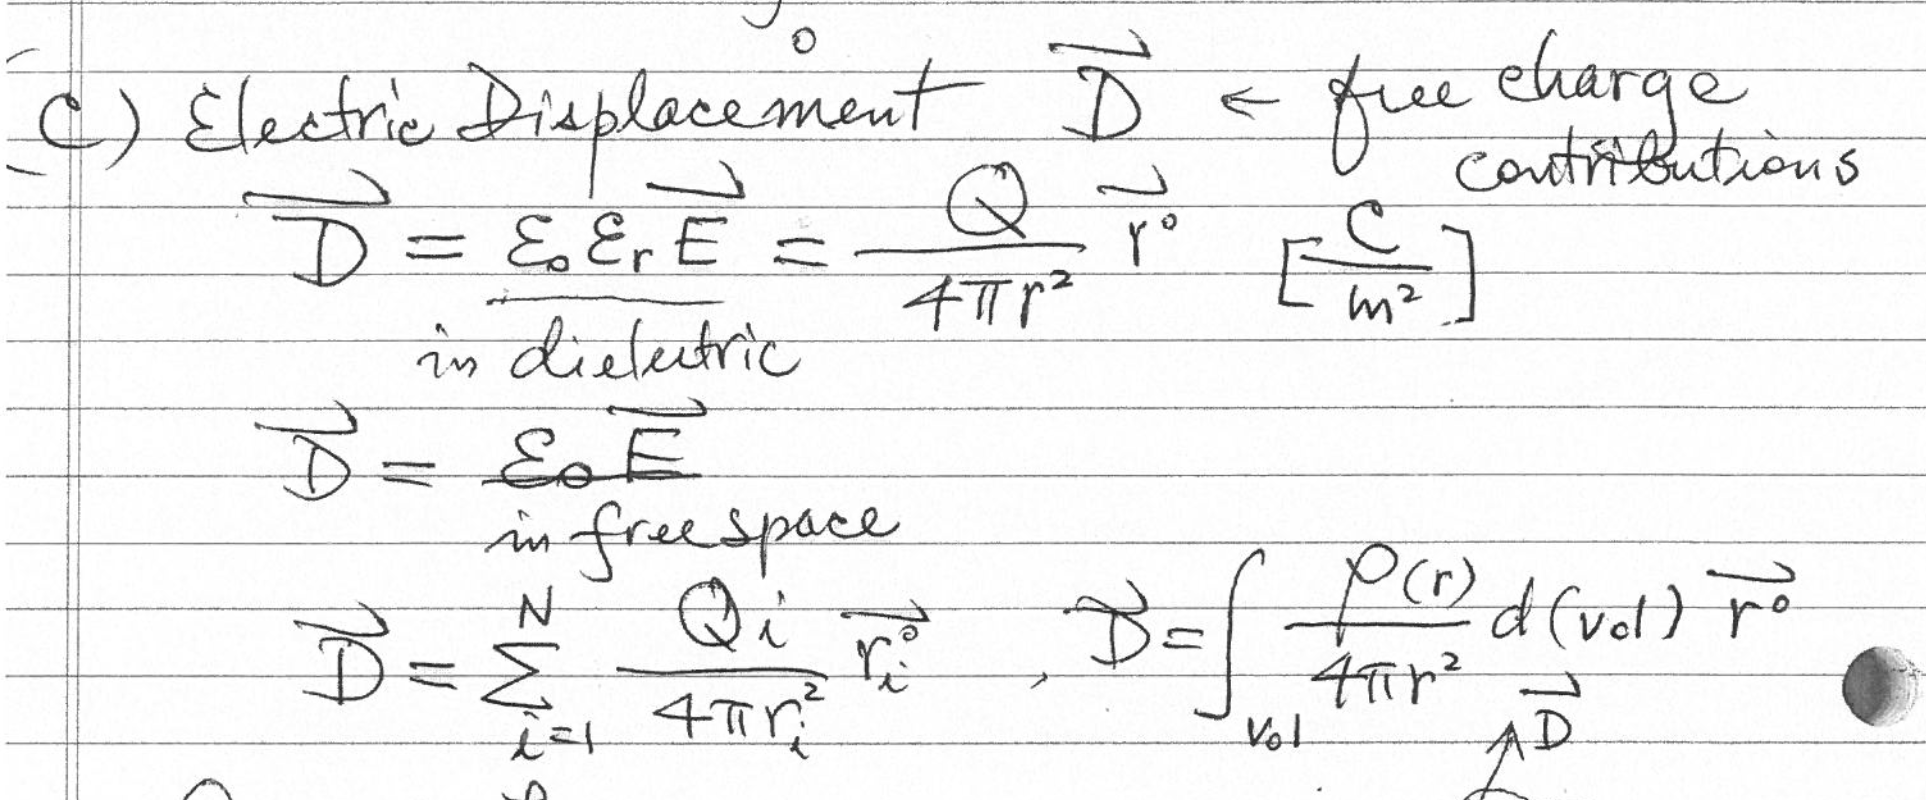 C) Electric Displacement D⃗ ← free charge
contributions
D⃗ = ε₀ εᵣ E⃗ = Q / 4πr² r⃗° [C / m²]
in dielectric
D⃗ = ε₀ E⃗
in free space
D⃗ = ∑_{i=1}^{N} Qᵢ / 4πrᵢ² r⃗ᵢ° , D⃗ = ∫_{Vol} ρ(r) / 4πr² d(vol) r⃗°
D⃗